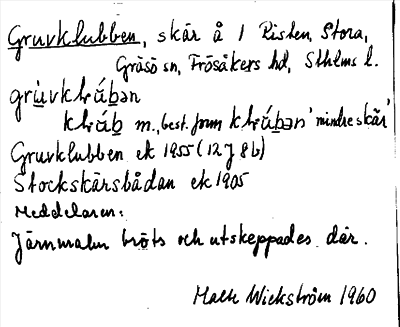 Gruvklubben, skär å l Risten, Stora,
Gräsö sn, Frösåkers hd, Sthlms l.
grùvklúb̲ən
klúb̲ m., best. form klúb̲ən 'mindre skär'
Gruvklubben ek 1955 (12J 8b)
Stockskärsbådan ek 1905
Meddelaren:
Järnmalm bröts och utskeppades där.
Mats Wickström 1960